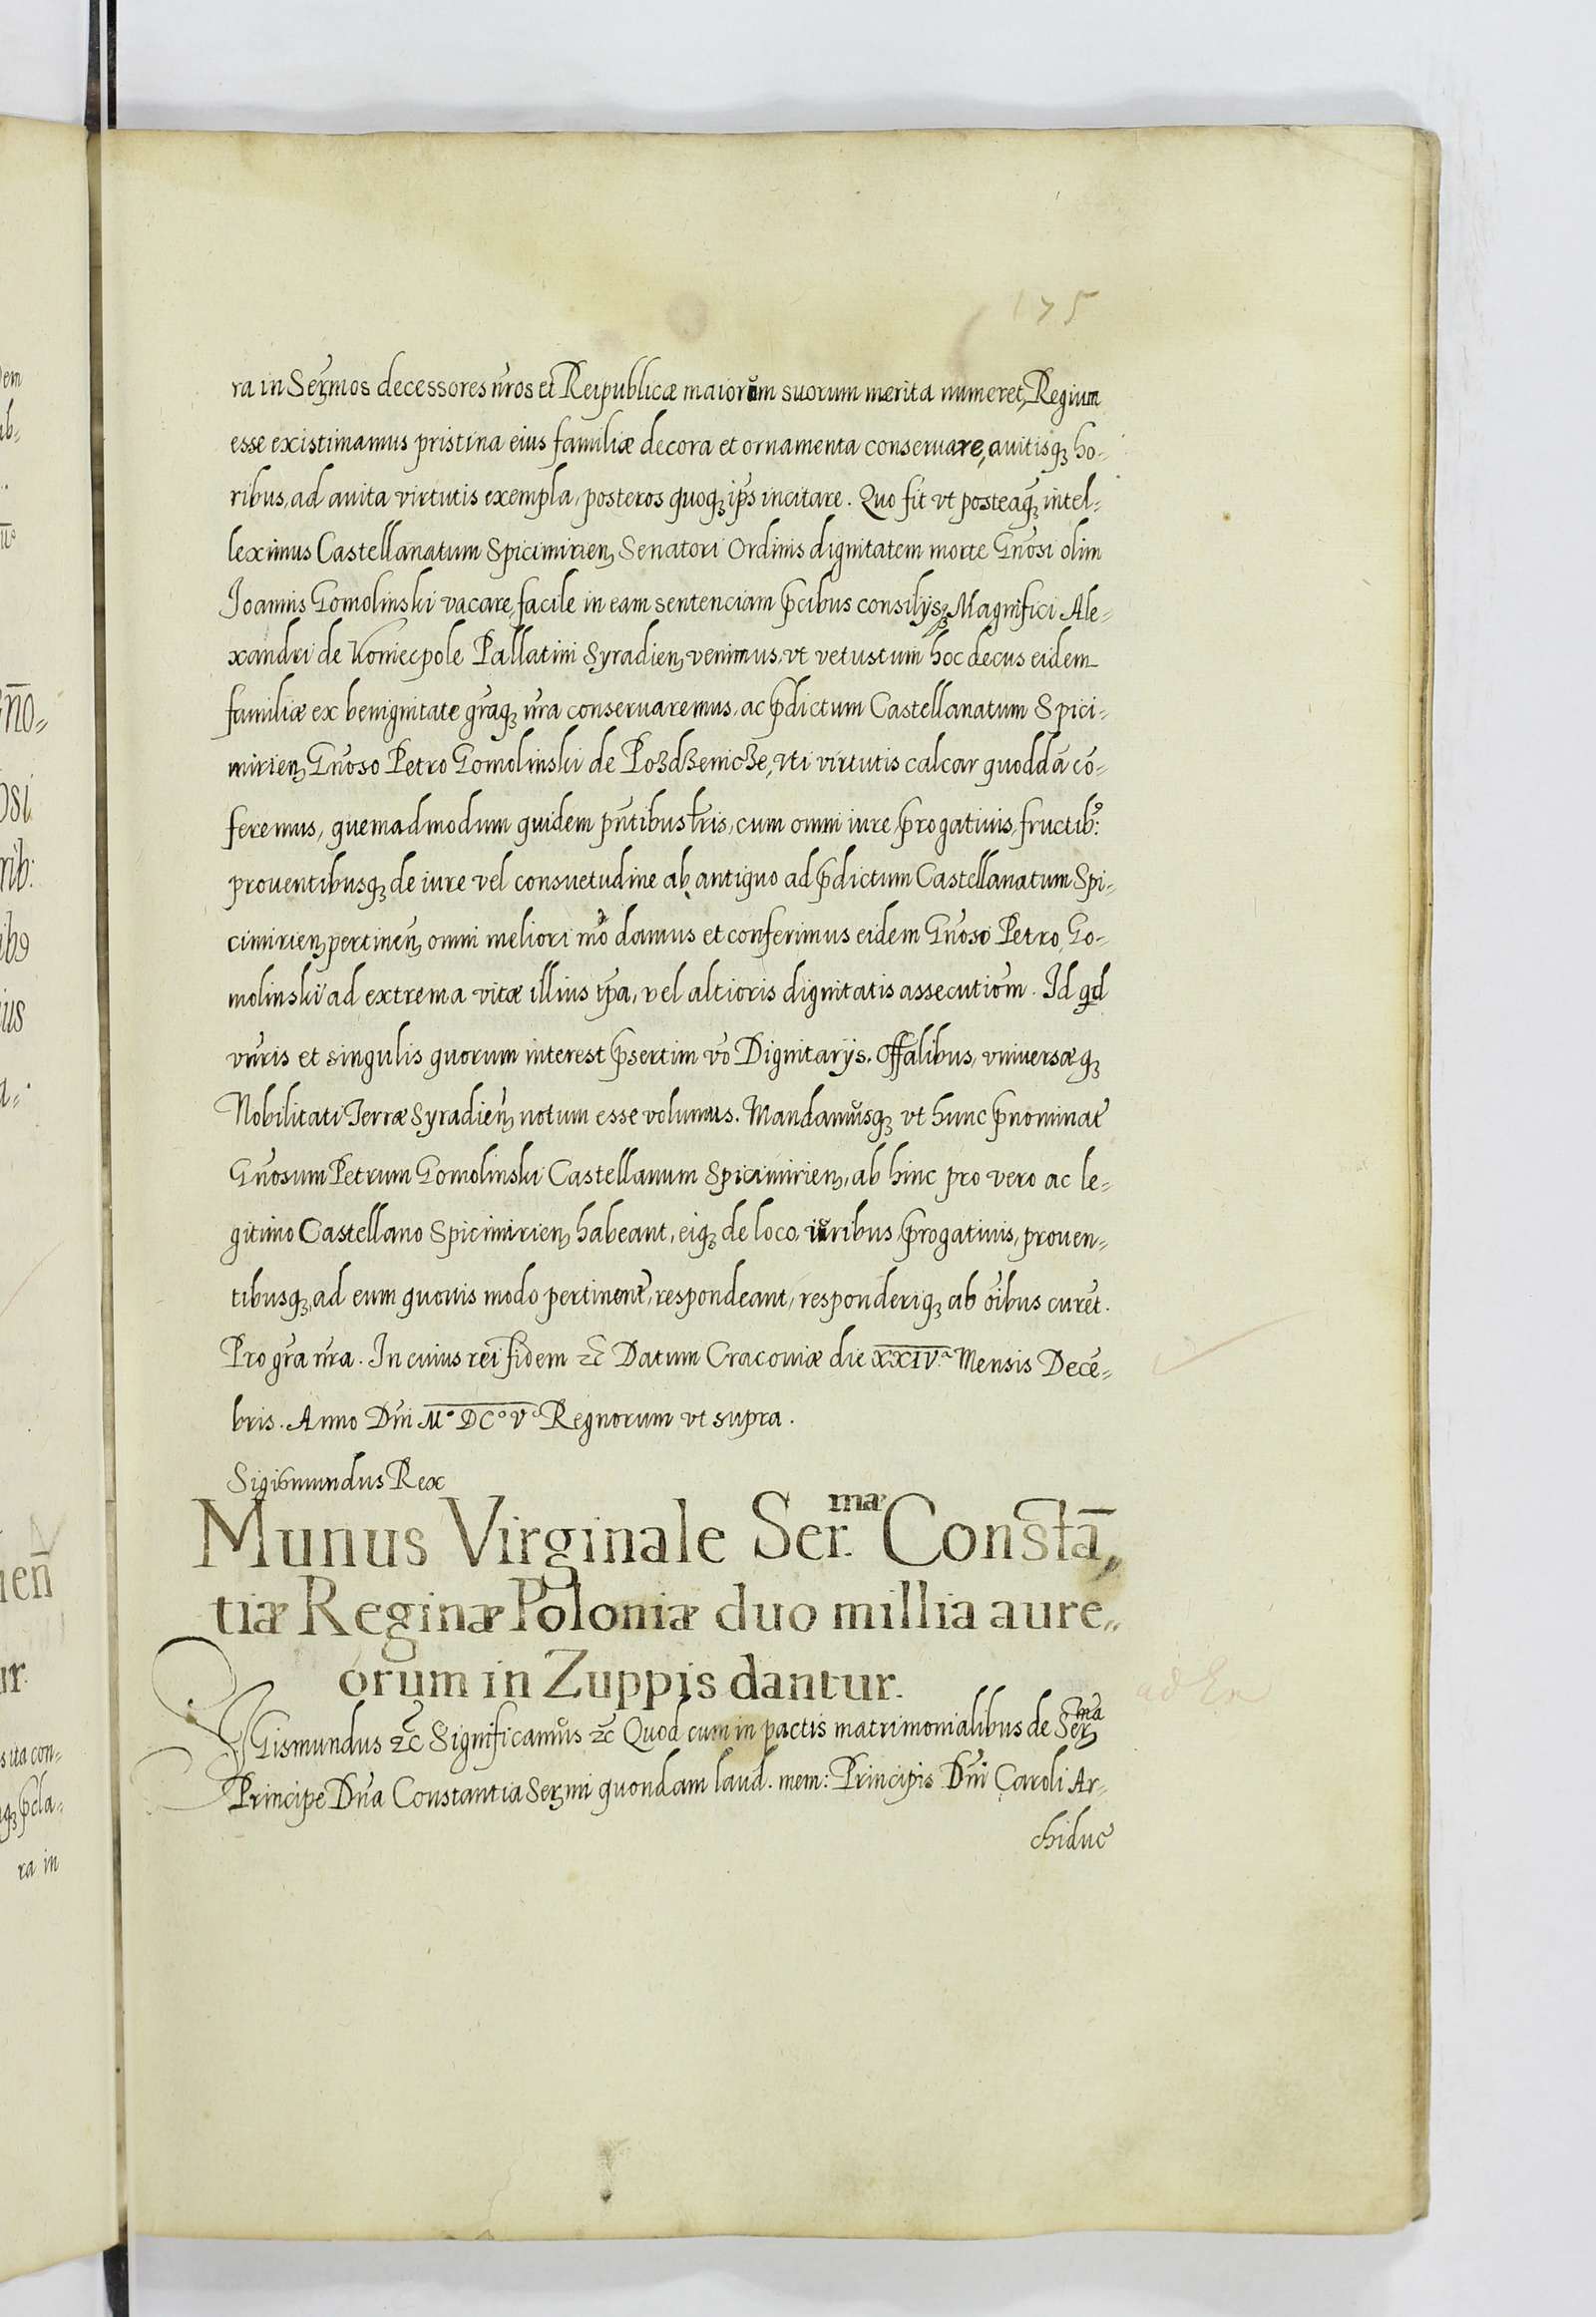 175
ra in Serm̃os decessores nr̃os et Reipublicæ maiorŭm suorum merita numeret, Regium
esse existimamus pristina eius familiæ decora et ornamenta conseruare, auitisqȝ ho-
ribus, ad auita virtutis exempla, posteros quoqȝ ip̃s incitare. Quo fit vt posteaq̃ȝ intel-
leximus Castellanatum Spicimirienȝ Senatori Ordinis dignitatem morte Gñosi olim
Joannis Gomolinski vacare, facile in eam sentenciam p̃cibus consilijsqȝ Magnifici Ale-
xandri de Koniecpole Pallatini Syradienȝ venimus, vt vetustum hoc decus eidem
familiæ ex benignitate gr̃aqȝ nr̃a conseruaremus, ac p̃dictum Castellanatum Spici-
mirienȝ Gñoso Petro Gomolinski de Pozdzenicze, vti virtutis calcar quoddã cõ-
feremus, quemadmodum quidem pñtibus lr̃is, cum omni iure, p̃rogatiuis, fructib9:
prouentibusqȝ de iure vel consuetudine ab antiquo ad p̃dictum Castellanatum Spi-
cimirienȝ pertineñȝ omni meliori mõ damus et conferimus eidem Gñoso Petro Go-
molinski ad extrema vitæ illius tp̃a, vel altioris dignitatis assecutiõm. Id qd
vnr̃is et singulis quorum interest p̃sertim võ Dignitarijs. Offalibus, vniuersæqȝ
Nobilitati Terræ Syradieñȝ notum esse volumus. Mandamŭsqȝ vt hunc p̃nominat̃
Gñosum Petrum Gomolinski Castellanum Spicimirienȝ, ab hinc pro vero ac le-
gitimo Castellano Spicimirienȝ habeant, eiqȝ de loco, iŭribus, p̃rogatiuis, prouen-
tibusqȝ, ad eum quouis modo pertinent̃, respondeant, responderiqȝ ab oĩbus curẽt.
Pro gr̃a nr̃a. In cuius rei fidem ⁊c̃ Datum Cracouiæ die XXIV.ª Mensis Decẽ-
bris. Anno Dñi M° DC° V° Regnorum vt supra.
Sigismundus Rex
Munus Virginale Ser.mæ Constã-
tiæ Reginæ Poloniæ duo millia aure-
orum in Zuppis dantur.
SIGismundus ⁊c̃ Significamŭs ⁊c̃ Quod cum in pactis matrimonialibus de Serma
Principe Dña Constantia Serm̃i quondam laud. mem: Principis Dñi Caroli Ar-
chiduc̃